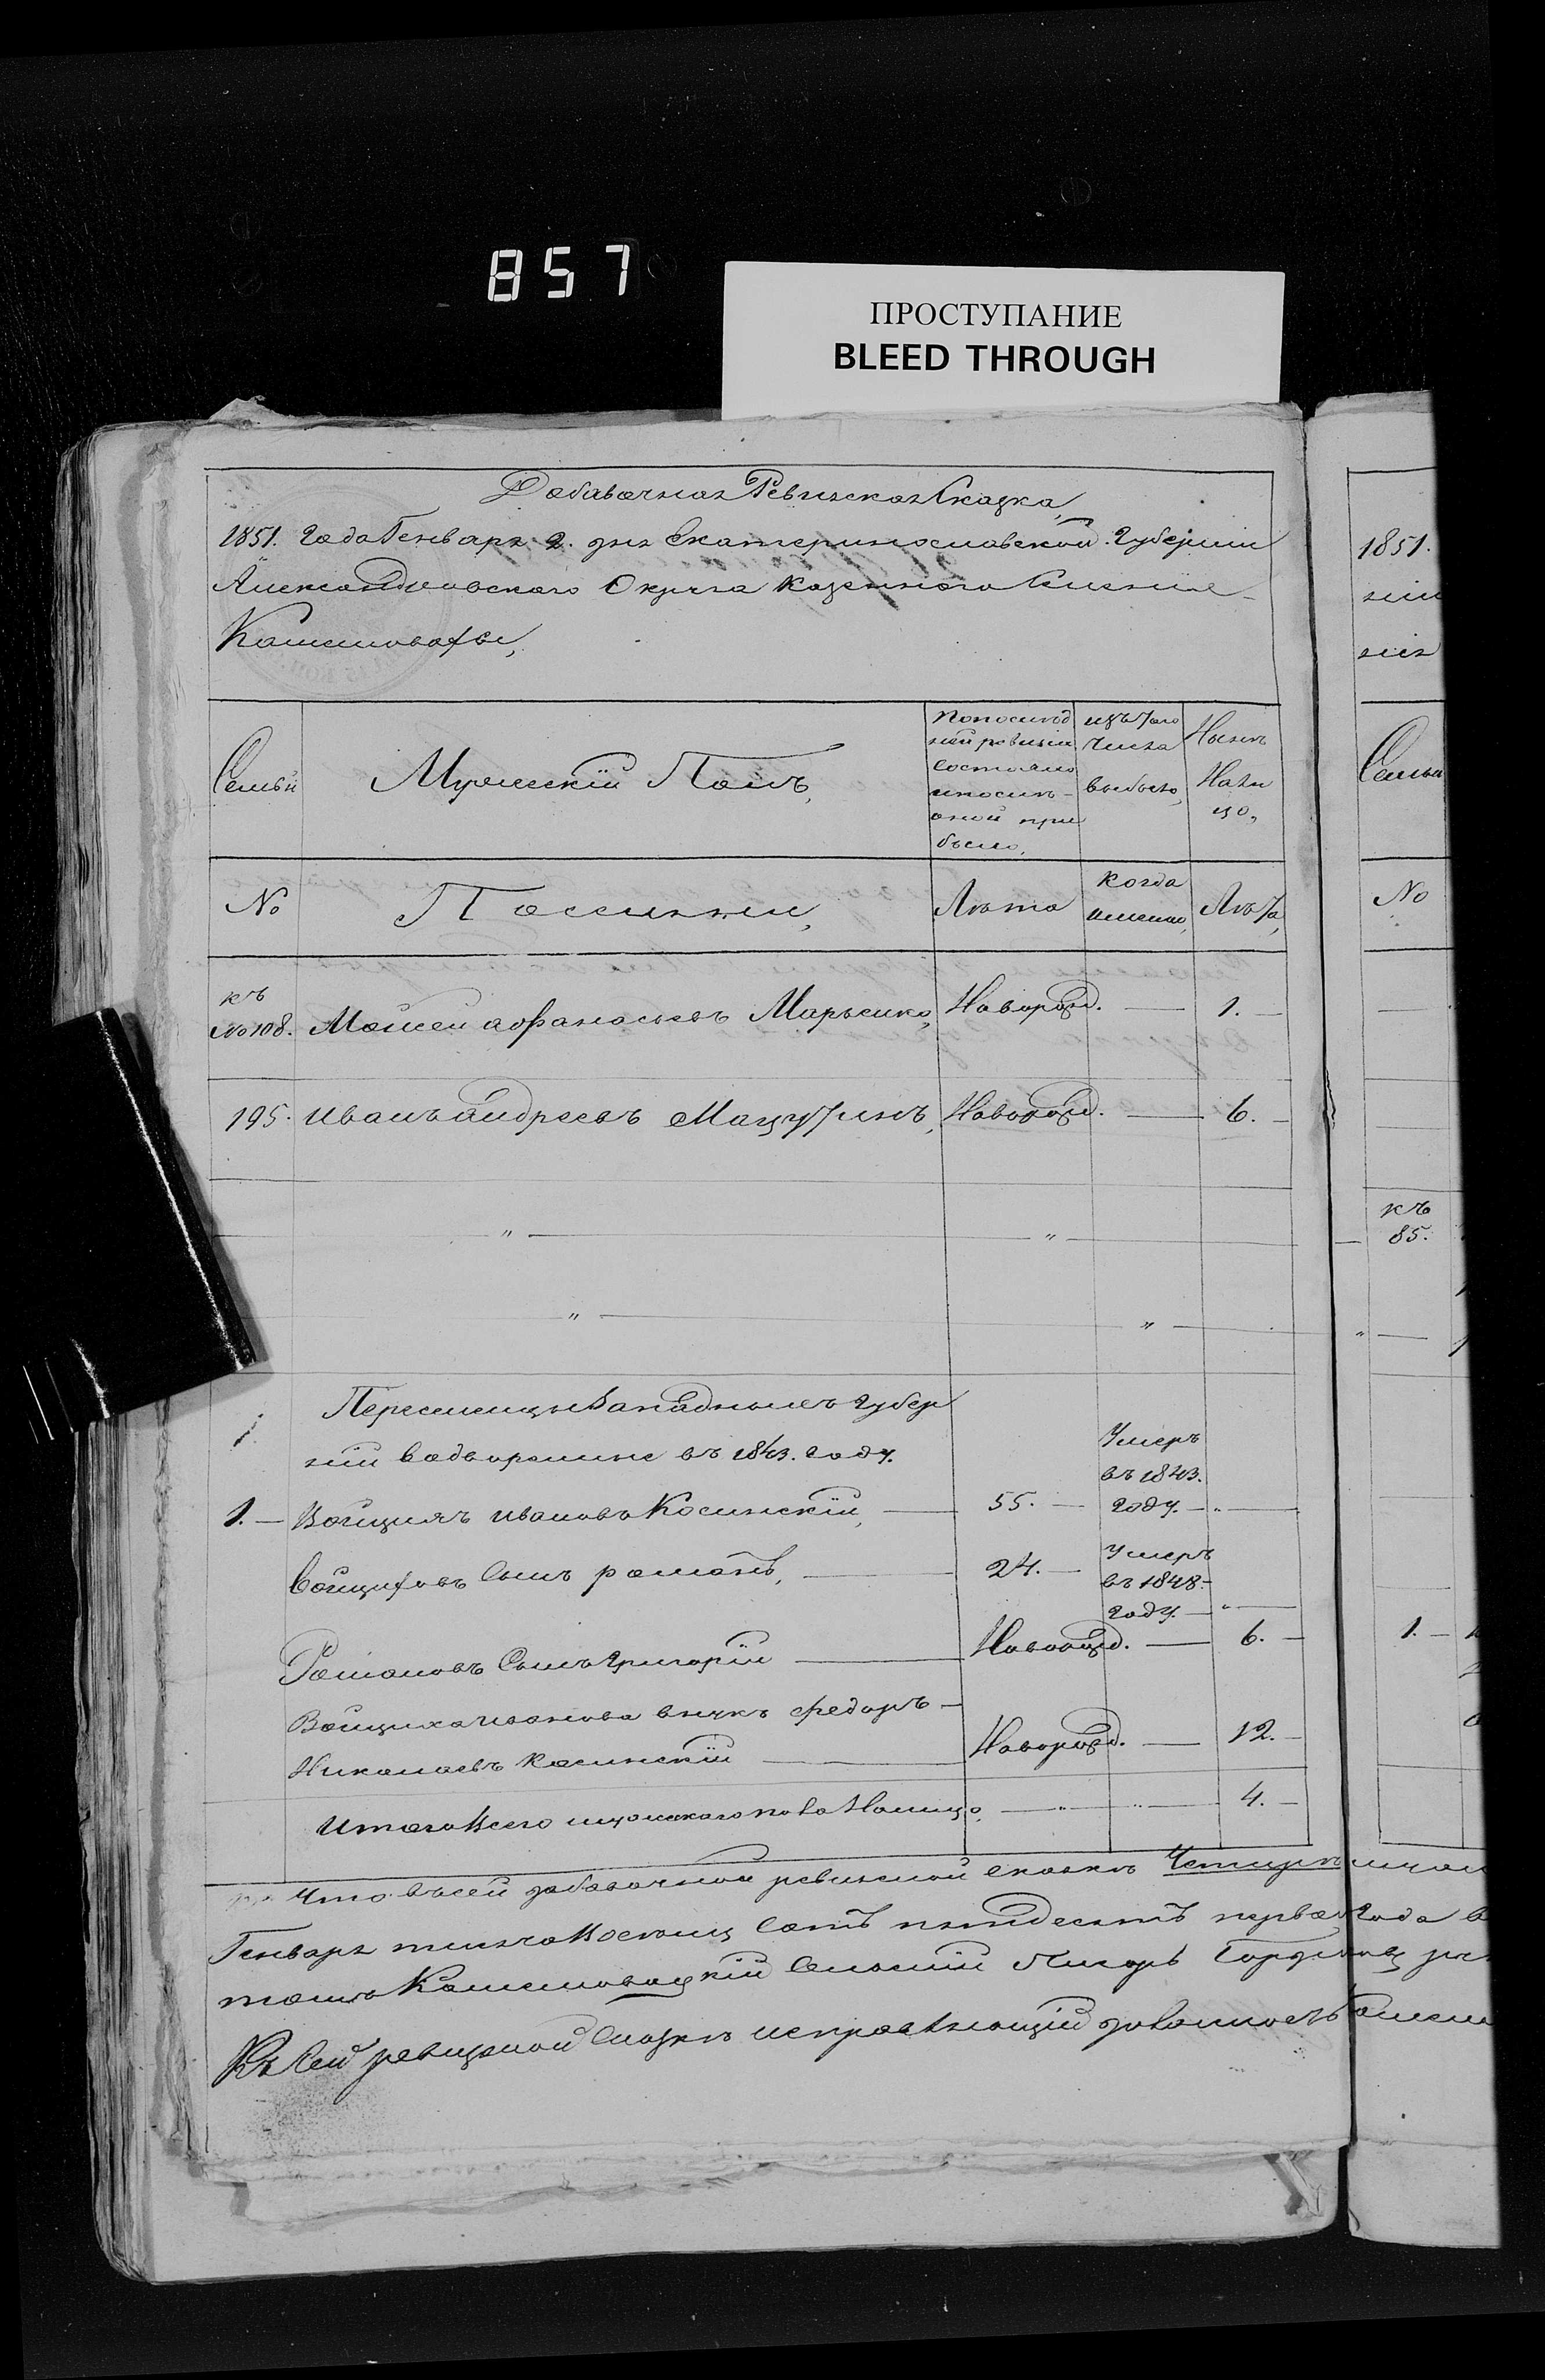 857
ПРОСТУПАНИЕ
BLEED THROUGH
Добавочная Ревизская Сказка,
1851. Года Генваря 2. дня Екатеринославской Губернiи
Александровскаго Округа Казеннаго Селенiя
Камышовахи,
Семьи
Мужескiй Полъ,
По послѣд
ней ревизiи
состояло
и послѣ
оной при
было,
изъ того
числа
выбыло,
Нынѣ
На ли
цо,
№
Поселяне,
Лѣта
когда
именно,
Лѣта,
къ
№ 108. Мойсей афанасьевъ Марченко, Новорожд. — 1. —
195. иванъ андреевъ Мазутинъ, Новорожд. — 6. —
Переселенцы Западныхъ Губер
нiй водворенные въ 1843. году.
1. — Войцихъ ивановъ Косинскiй, — 55. — Умеръ въ 1843. году. —
Войциховъ Сынъ романъ, — 24. — Умеръ въ 1848. году. —
Романовъ Сынъ Григорiй — Новорожд. — 6. —
Войциха иванова внукъ федоръ —
Николаевъ Косинскiй — Новорожд. — 12. —
Итого Всего мужескаго пола На лицо, — 4. —
Что въ сей добавочной ревизской сказкѣ Четыре
Генваря тысяча Восемь Сотъ пятдесятъ перваго года
Камышовацкiй Сельскiй Писарь
Къ Сей ревизской Сказкѣ исправляющiй должность
1851.
нiи
нiя
Семьи
№
къ
85.
1. —